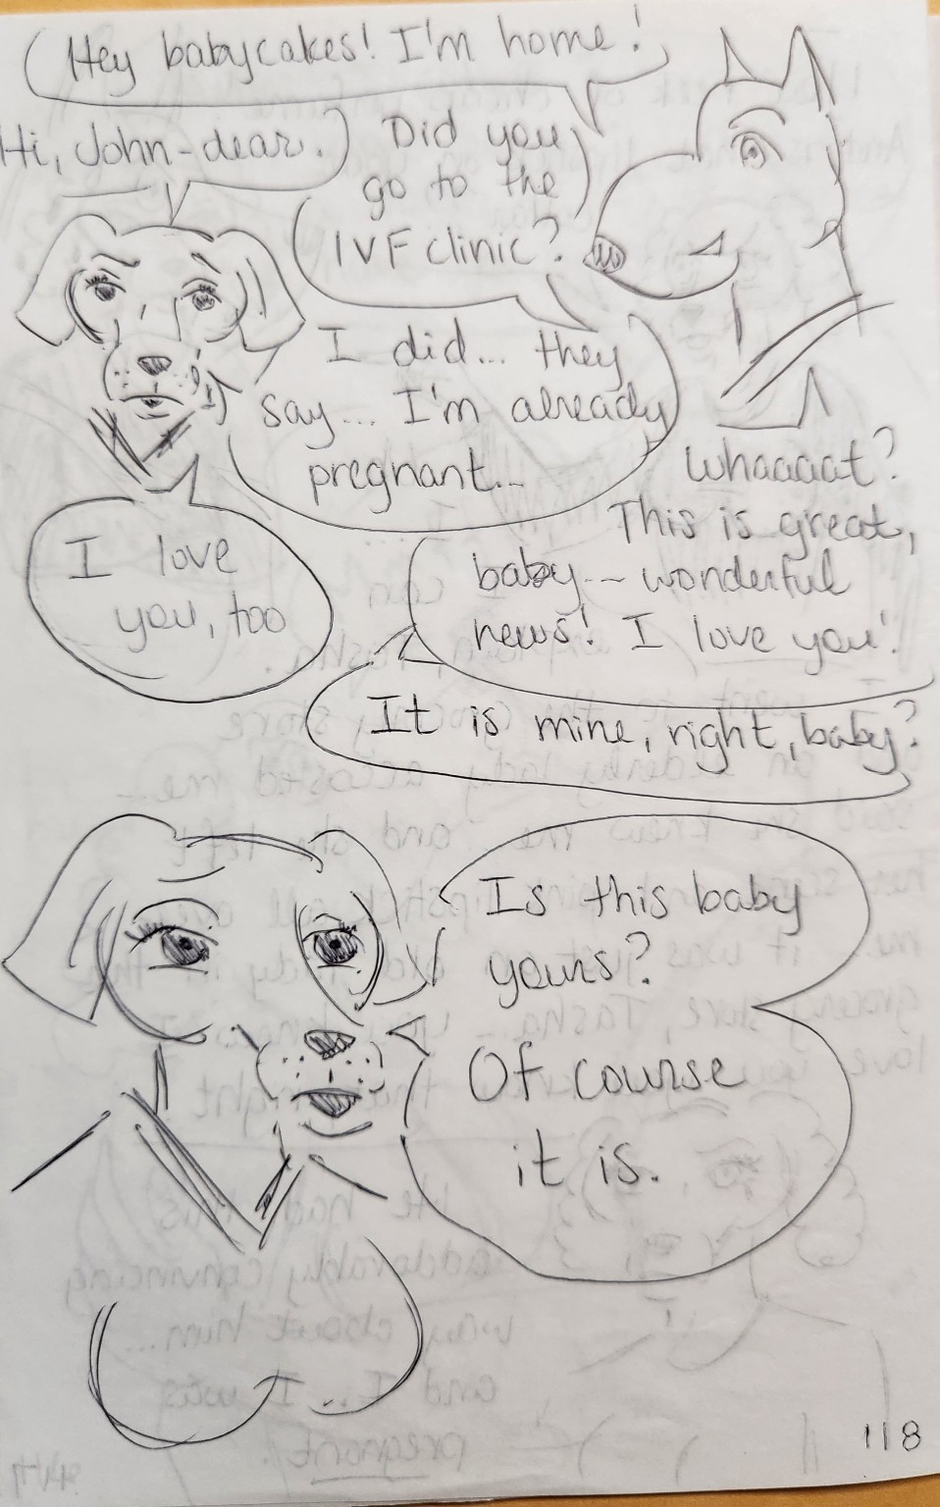 Hey babycakes! I'm home!
Hi, John-dear.
Did you
go to the
IVF clinic?
I did... they
say... I'm already
pregnant...
Whaaaat?
This is great,
baby -- wonderful
news! I love you!
I love
you, too
It is mine, right, baby?
Is this baby
yours?
Of course
it is.
118